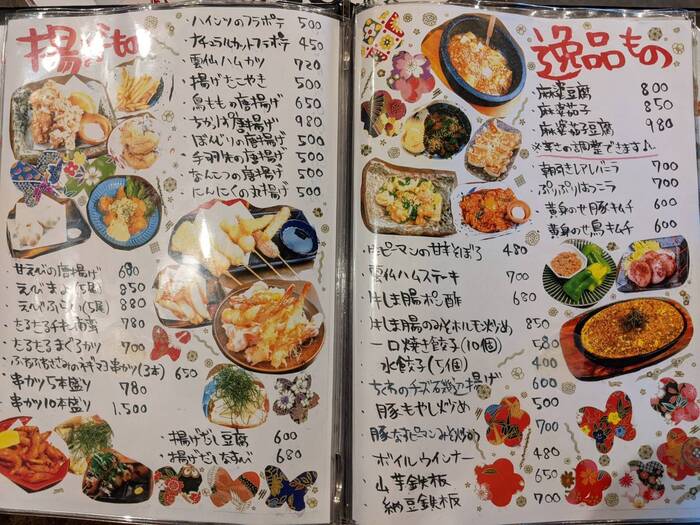 揚げもの
・ハインツのフラポテ 500
・ナチュラルカットフラポテ 450
・雲仙ハムカツ 720
・揚げたこやき 500
・鳥ももの唐揚げ 650
唐揚げ 980
・ぼんじりの唐揚げ 500
・手羽先の唐揚げ 500
・なんこつの唐揚げ 500
・にんにくの丸揚げ 500
・甘えびの唐揚げ 680
・えびマヨ(5尾) 850
・えびふらい(5尾) 880
・たるたるチキン南蛮 780
・たるたるまぐろかつ 700
串かつ(3本) 650
・串かつ5本盛り 780
・串かつ10本盛り 1,500
・揚げだし豆腐 600
・揚げだしなすび 680
逸品もの
・麻婆豆腐 800
・麻婆茄子 850
・麻婆茄子豆腐 980
調整できます♪
700
・ぷりぷりはつニラ 700
・黄身のせ豚キムチ 600
・黄身のせ鳥キムチ 600
・生ピーマンの甘辛そぼろ 480
・雲仙ハムステーキ 700
・牛しま腸ポン酢 680
・牛しま腸のみそホルモン炒め 850
・一口焼き餃子(10個) 580
・水餃子(5個) 400
・ちくわのチーズ磯辺揚げ 600
・豚モヤシ炒め 500
・豚なすピーマンみそ炒め 700
・ボイルウインナー 480
・山芋鉄板 650
・納豆鉄板 700